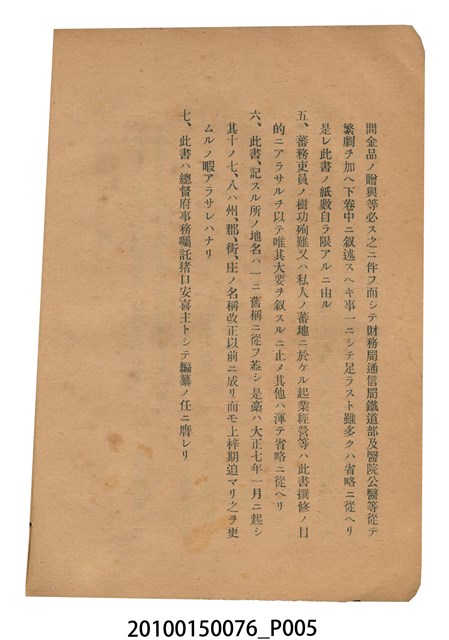 間金品ノ贈與等必ス之ニ件フ而シテ財務局通信局鐵道部及醫院公醫等從テ
繁劇チ加ヘ下卷中ニ叙述スヘキ事一ニシテ足ラスト雖多クハ省略ニ從ヘリ
是レ此書ノ紙數自ラ限アルニ由ル
五、蕃務吏員ノ樹功殉難又ハ私人ノ蕃地ニ於ケル起業經營等ハ此書撰修ノ目
的ニアラサルチ以テ唯其大要チ叙スルニ止メ其他ハ渾テ省略ニ從ヘリ
六、此書、記スル所ノ地名ハ一ニ舊稱ニ從フ蓋シ是藁ハ大正七年一月ニ起シ
其十ノ七、八ハ州、郡、街、庄ノ名稱改正以前ニ成リ而モ上梓期迫マリ之チ更
ムルノ暇アラサレハナリ
七、此書ハ總督府事務囑託猪口安喜主トシテ編纂ノ任ニ膺レリ
20100150076_P005